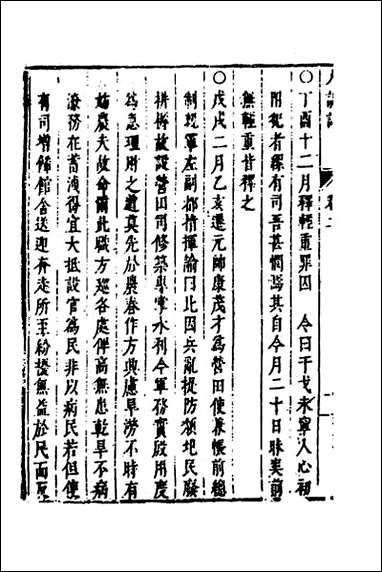 〇丁酉十二月釋輕重罪囚　令曰干戈未寧人心初
附犯者繫有司吾甚憫焉其自今月二十日昧爽前
無輕重皆釋之
〇戊戌二月乙亥遷元帥康茂才為營田使兼帳前總
制親軍左副都指揮諭曰比因兵亂堤防頹圯民廢
耕耨故設營田司修築專掌水利今軍務實殷用度
為急理財之道莫先於農春作方興慮旱澇不時有
妨農夫故命爾此職方巡各處俾高無患乾旱不病
潦務在蓄洩得宜大抵設官為民非以病民若但使
有司增飾館舍送迎奔走所至紛擾無益於民而反